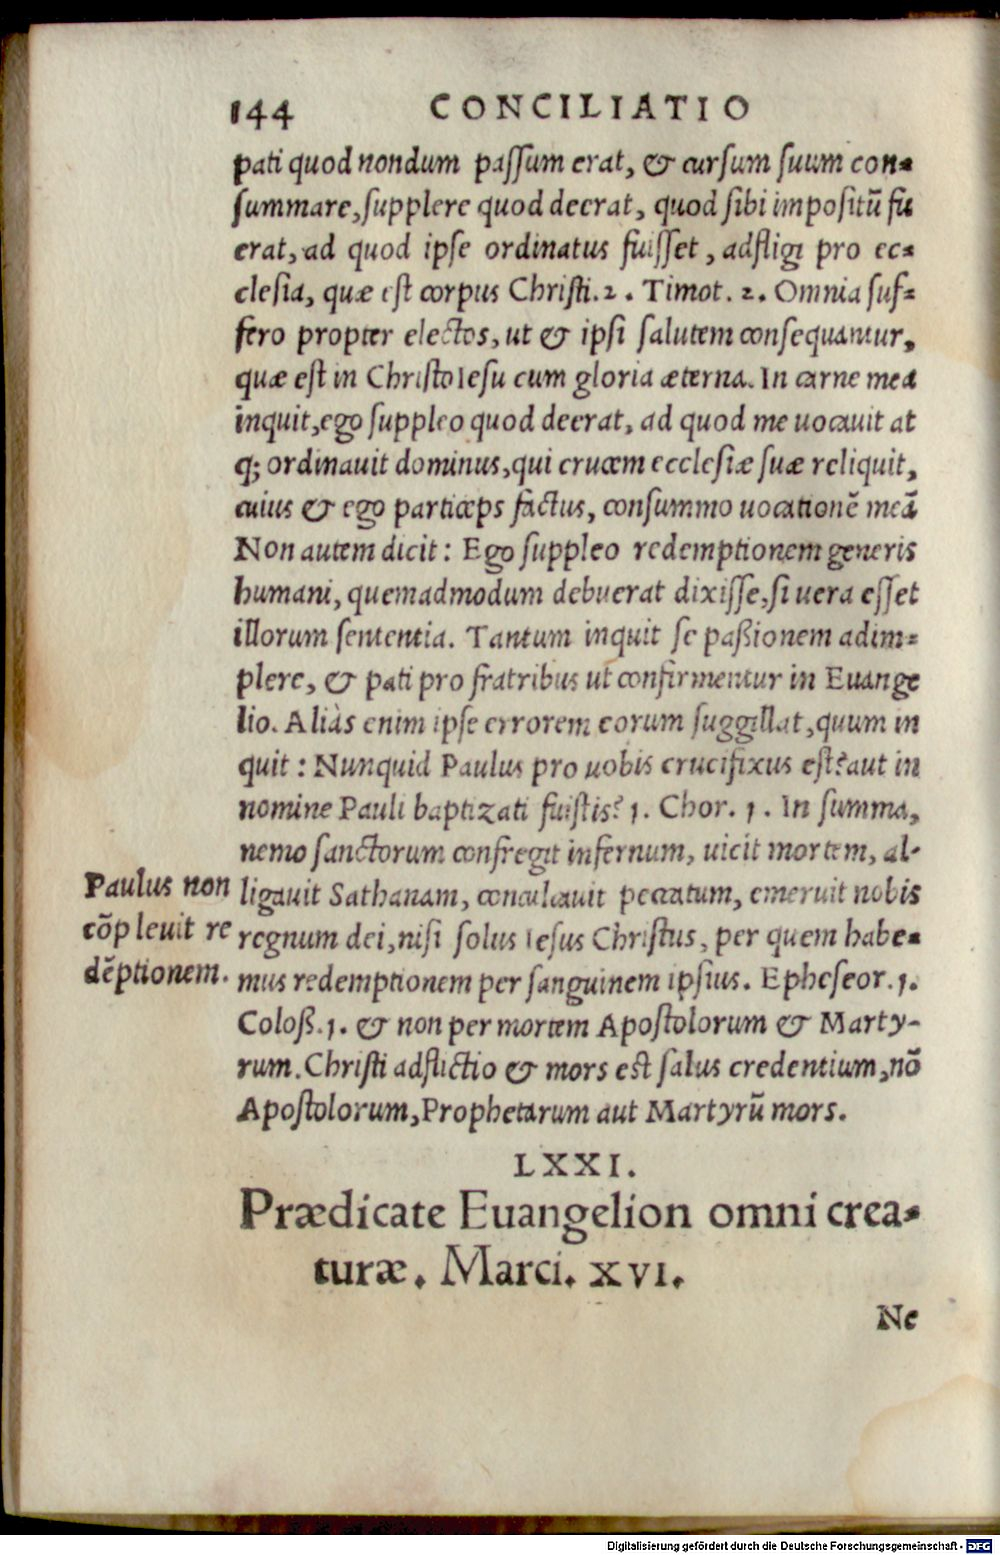 144 CONCILIATIO
pati quod nondum passum erat, & cursum suum con-
summare, supplere quod deerat, quod sibi impositũ fu
erat, ad quod ipse ordinatus fuisset, adfligi pro ec-
clesia, quæ est corpus Christi. 2. Timot. 2. Omnia suf-
fero propter electos, ut & ipsi salutem consequantur,
quæ est in Christo Iesu cum gloria æterna. In carne mea
inquit, ego suppleo quod deerat, ad quod me uocauit at
q; ordinauit dominus, qui crucem ecclesiæ suæ reliquit,
cuius & ego particeps factus, consummo uocationẽ meã
Non autem dicit: Ego suppleo redemptionem generis
humani, quemadmodum debuerat dixisse, si uera esset
illorum sententia. Tantum inquit se paßionem adim-
plere, & pati pro fratribus ut confirmentur in Euange
lio. Aliàs enim ipse errorem eorum suggillat, quum in
quit: Nunquid Paulus pro uobis crucifixus est? aut in
nomine Pauli baptizati fuistis? 1. Chor. 1. In summa,
nemo sanctorum confregit infernum, uicit mortem, al-
ligauit Sathanam, conculcauit peccatum, emeruit nobis
regnum dei, nisi solus Iesus Christus, per quem habe-
mus redemptionem per sanguinem ipsius. Epheseor. 1.
Coloß. 1. & non per mortem Apostolorum & Marty-
rum. Christi adflictio & mors est salus credentium, nõ
Apostolorum, Prophetarum aut Martyrũ mors.
Paulus non
cõpleuit re
dẽptionem.
LXXI.
Prædicate Euangelion omni crea-
turæ. Marci. XVI.
Ne
Digitalisierung gefördert durch die Deutsche Forschungsgemeinschaft - DFG